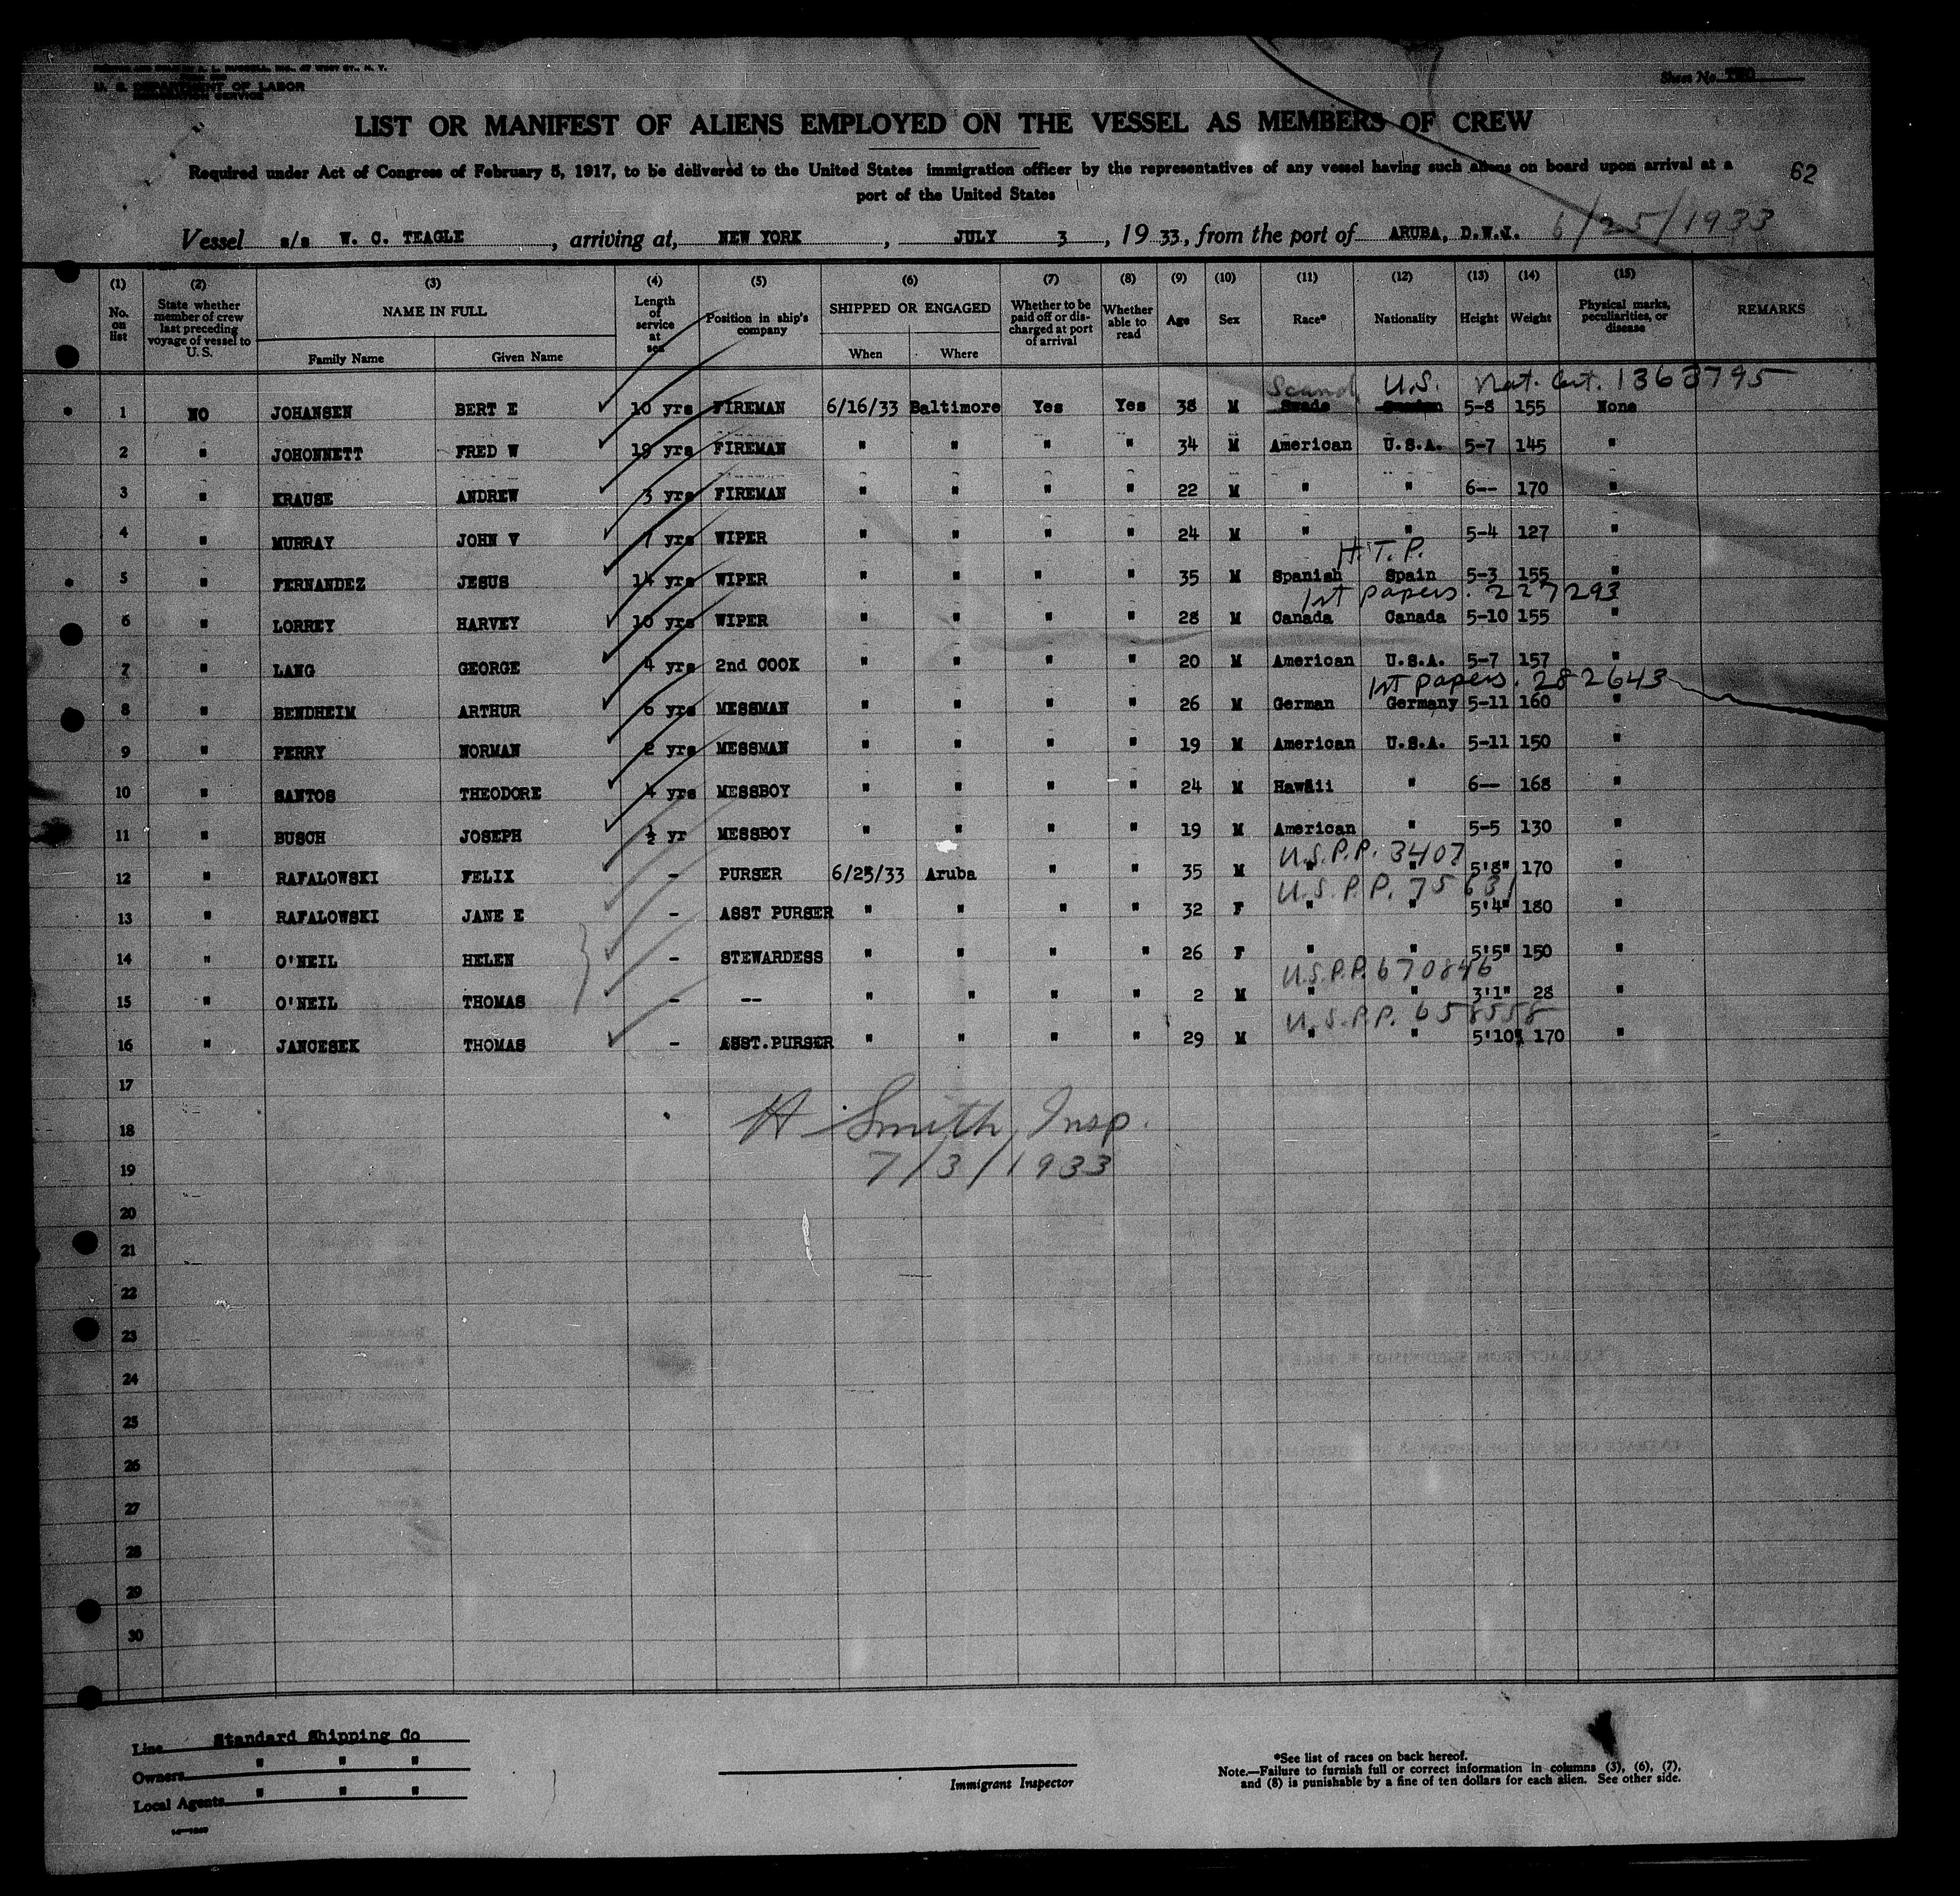 U. S. DEPARTMENT OF LABOR
IMMIGRATION SERVICE
Sheet No. TWO
LIST OR MANIFEST OF ALIENS EMPLOYED ON THE VESSEL AS MEMBERS OF CREW
Required under Act of Congress of February 5, 1917, to be delivered to the United States immigration officer by the representatives of any vessel having such aliens on board upon arrival at a
port of the United States
62
Vessel s/s W. C. TEAGLE, arriving at, NEW YORK, JULY 3, 1933, from the port of ARUBA, D.W.I. 6/25/1933
(1) (2) (3) (4) (5) (6) (7) (8) (9) (10) (11) (12) (13) (14) (15)
No. on list State whether member of crew last preceding voyage of vessel to U.S. NAME IN FULL Length of service at sea Position in ship's company SHIPPED OR ENGAGED Whether to be paid off or discharged at port of arrival Whether able to read Age Sex Race* Nationality Height Weight Physical marks, peculiarities, or disease REMARKS
Family Name Given Name When Where
Scand. U.S. Nat. Cert. 1363795
1 NO JOHANSEN BERT E 10 yrs FIREMAN 6/16/33 Baltimore Yes Yes 38 M Swede Sweden 5-8 155 None
2 " JOHONNETT FRED W 19 yrs FIREMAN " " " " 34 M American U.S.A. 5-7 145 "
3 " KRAUSE ANDREW 3 yrs FIREMAN " " " " 22 M " " 6-- 170 "
4 " MURRAY JOHN V 7 yrs WIPER " " " " 24 M " " 5-4 127 "
H.T.P.
5 " FERNANDEZ JESUS 14 yrs WIPER " " " " 35 M Spanish Spain 5-3 155 "
1st papers. 227293
6 " LORREY HARVEY 10 yrs WIPER " " " " 28 M Canada Canada 5-10 155 "
7 " LANG GEORGE 4 yrs 2nd COOK " " " " 20 M American U.S.A. 5-7 157 "
1st papers. 282643
8 " BENDHEIM ARTHUR 6 yrs MESSMAN " " " " 26 M German Germany 5-11 160 "
9 " PERRY NORMAN 2 yrs MESSMAN " " " " 19 M American U.S.A. 5-11 150 "
10 " SANTOS THEODORE 4 yrs MESSBOY " " " " 24 M Hawaii " 6-- 168 "
11 " BUSCH JOSEPH ½ yr MESSBOY " " " " 19 M American " 5-5 130 "
U.S.P.P. 3407
12 " RAFALOWSKI FELIX - PURSER 6/25/33 Aruba " " 35 M " " 5'8" 170 "
U.S.P.P. 75631
13 " RAFALOWSKI JANE E - ASST PURSER " " " " 32 F " " 5'4" 180 "
14 " O'NEIL HELEN - STEWARDESS " " " " 26 F " " 5'5" 150 "
U.S.P.P. 670846
15 " O'NEIL THOMAS - -- " " " " 2 M " " 3'1" 28 "
U.S.P.P. 658558
16 " JANCESEK THOMAS - ASST.PURSER " " " " 29 M " " 5'10" 170 "
17
18
H Smith, Insp.
19
7/3/1933
20
21
22
23
24
25
26
27
28
29
30
Line Standard Shipping Co
Owners " " "
Local Agents " " "
Immigrant Inspector
*See list of races on back hereof.
Note.—Failure to furnish full or correct information in columns (3), (6), (7),
and (8) is punishable by a fine of ten dollars for each alien. See other side.